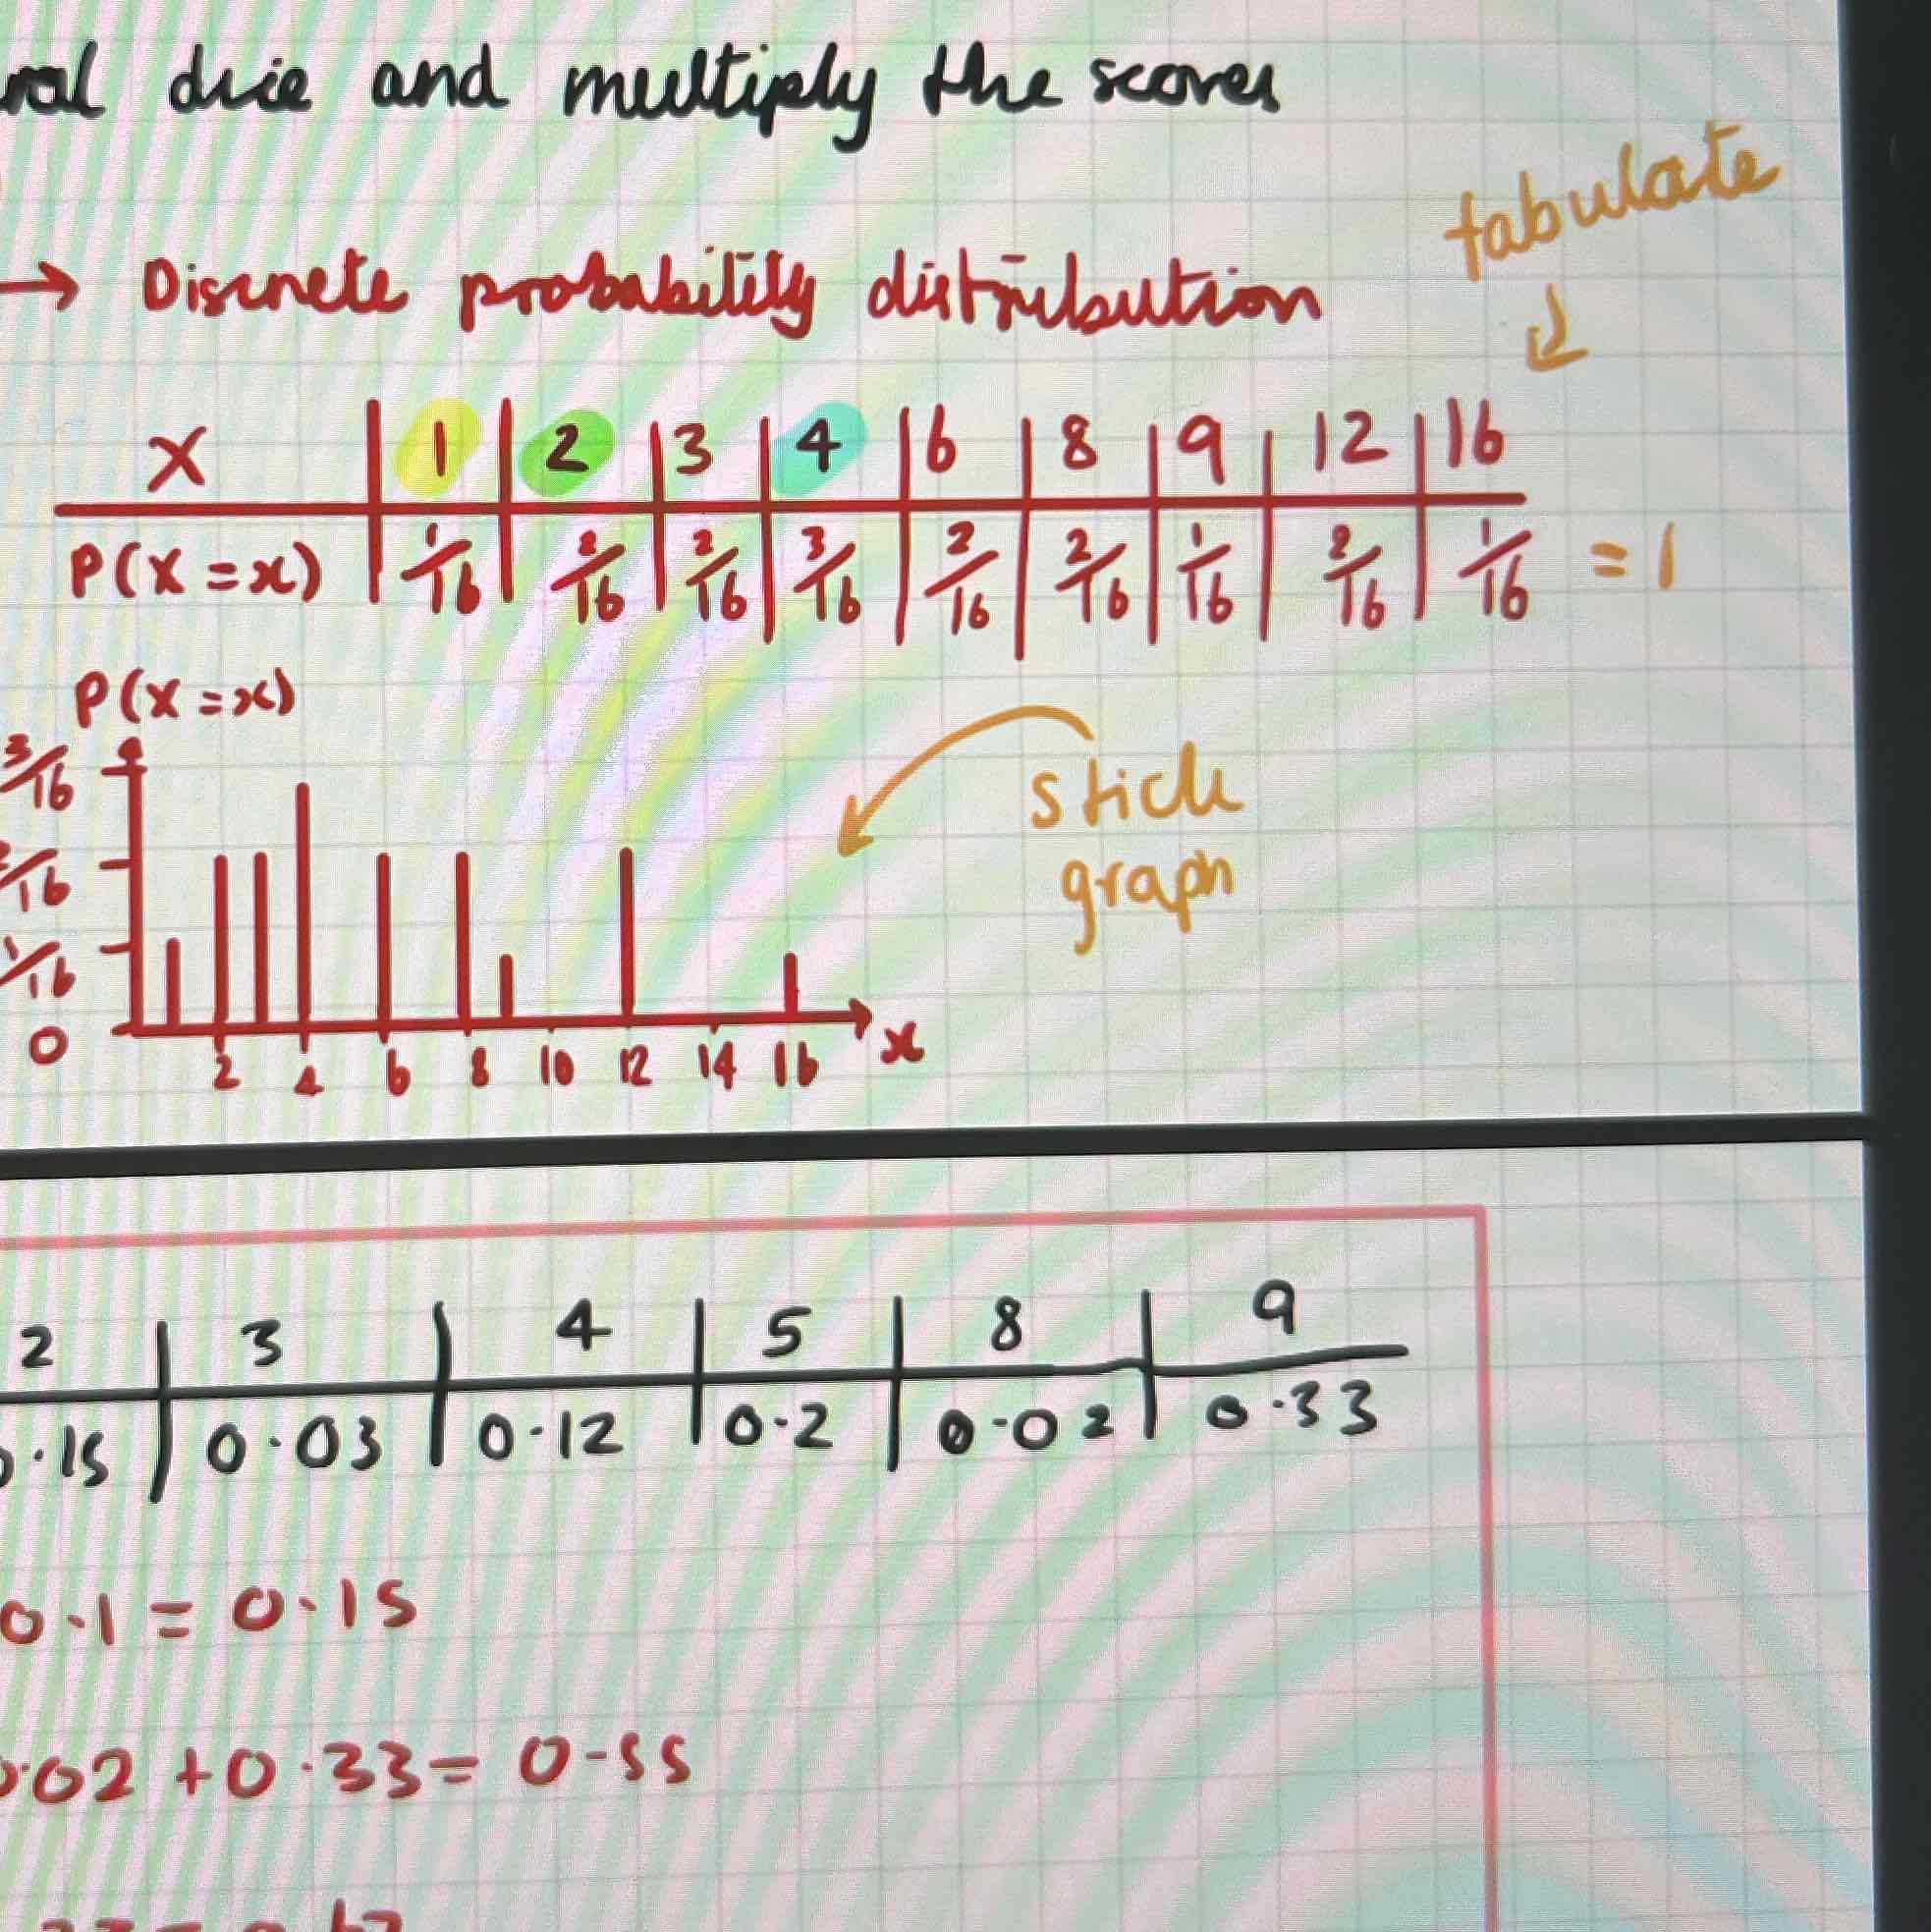 dice and multiply the scores
tabulate
→ Discrete probability distribution
X | 1 | 2 | 3 | 4 | 6 | 8 | 9 | 12 | 16
P(X=x) | 1/16 | 2/16 | 2/16 | 3/16 | 2/16 | 2/16 | 1/16 | 2/16 | 1/16 = 1
P(X=x)
3/16
stick
graph
/16
1/16
0
2 4 6 8 10 12 14 16 x
2 | 3 | 4 | 5 | 8 | 9
.15 | 0.03 | 0.12 | 0.2 | 0.02 | 0.33
0.1 = 0.15
.02 + 0.33 = 0.55